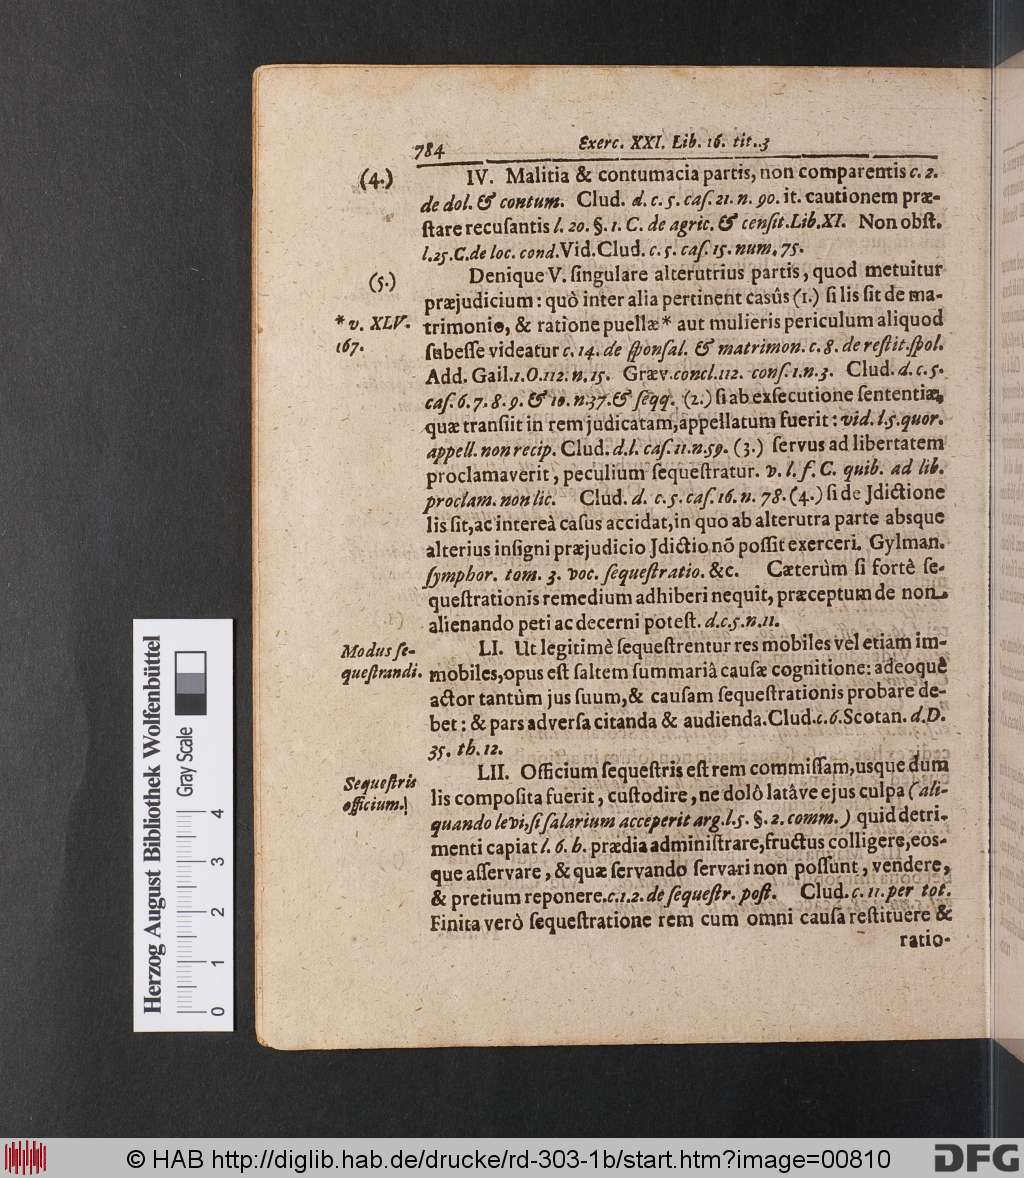 784
Exerc. XXI. Lib. 16. tit. 3
(4.)
IV. Malitia & contumacia partis, non comparentis c. 2.
de dol. & contum. Clud. d. c. 5. caſ. 21. n. 90. it. cautionem præ-
ſtare recuſantis l. 20. §. 1. C. de agric. & cenſit. Lib. XI. Non obſt.
l. 25. C. de loc. cond. Vid. Clud. c. 5. caſ. 15. num. 75.
(5.)
Denique V. ſingulare alterutrius partis, quod metuitur
præjudicium: quò inter alia pertinent casûs (1.) ſi lis ſit de ma-
* v. XLV.
167.
trimonio, & ratìone puellæ* aut mulieris periculum aliquod
ſubeſſe videatur c. 14. de ſponſal. & matrimon. c. 8. de reſtit. ſpol.
Add. Gail. 1. O. 112. n. 15. Græv. concl. 112. conſ. 1. n. 3. Clud. d. c. 5.
caſ. 6. 7. 8. 9. & 10. n. 37. & ſeqq. (2.) ſi ab exſecutione ſententiæ,
quæ tranſiit in rem judicatam, appellatum fuerit: vid. l. 5. quor.
appell. non recip. Clud. d. l. caſ. 11. n. 59. (3.) ſervus ad libertatem
proclamaverit, peculium ſequeſtratur. v. l. f. C. quib. ad lib.
proclam. non lic. Clud. d. c. 5. caſ. 16. n. 78. (4.) ſi de Jdictione
lis ſit, ac intereà caſus accidat, in quo ab alterutra parte absque
alterius inſigni præjudicio Jdictio nõ poſſit exerceri. Gylman.
ſymphor. tom. 3. voc. ſequeſtratio. &c. Cæterùm ſi fortè ſe-
queſtrationis remedium adhiberi nequit, præceptum de non
alienando peti ac decerni poteſt. d. c. 5. n. 11.
Modus ſe-
queſtrandi.
LI. Ut legitimè ſequeſtrentur res mobiles vel etiam im-
mobiles, opus eſt ſaltem ſummariâ cauſæ cognitione: adeoquè
actor tantùm jus ſuum, & cauſam ſequeſtrationis probare de-
bet: & pars adverſa citanda & audienda. Clud. c. 6. Scotan. d. D.
35. th. 12.
Sequeſtris
officium.
LII. Officium ſequeſtris eſt rem commiſſam, usque dum
lis compoſita fuerit, cuſtodire, ne dolò latâve ejus culpa (ali-
quando levi, ſi ſalarium acceperit arg. l. 5. §. 2. comm.) quid detri-
menti capiat l. 6. h. prædia adminiſtrare, fructus colligere, eos-
que aſſervare, & quæ ſervando ſervari non poſſunt, vendere,
& pretium reponere. c. 1. 2. de ſequeſtr. poſt. Clud. c. 11. per tot.
Finita verò ſequeſtratione rem cum omni cauſa reſtituere &
ratio-
Herzog August Bibliothek Wolfenbüttel
Gray Scale
0 1 2 3 4
© HAB http://diglib.hab.de/drucke/rd-303-1b/start.htm?image=00810
DFG